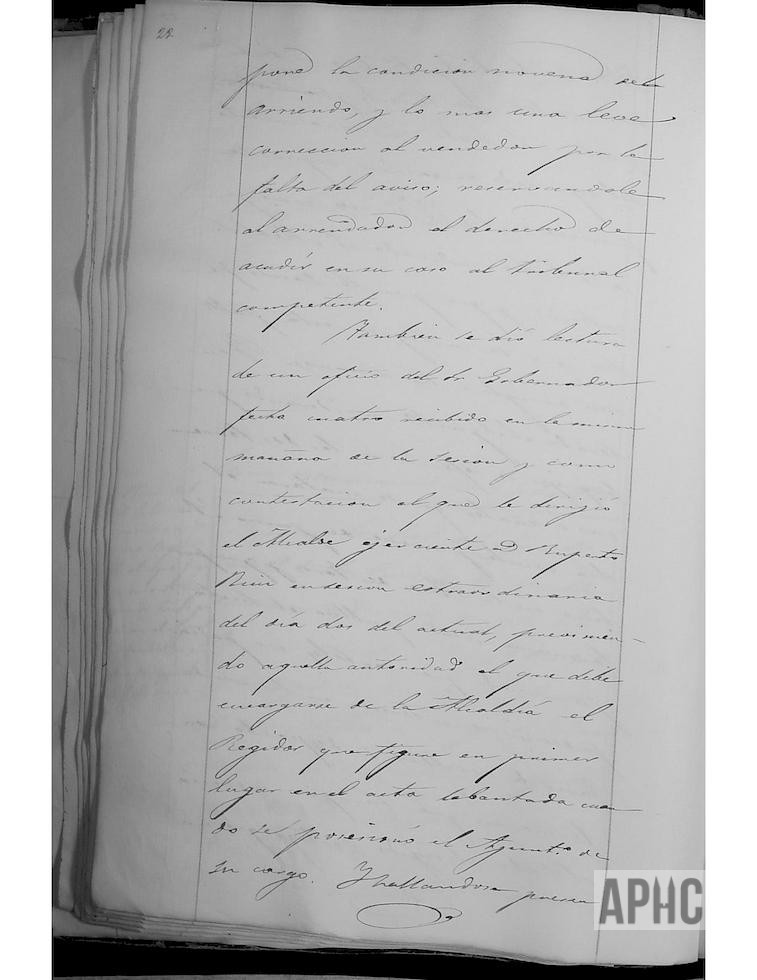 22
pone la condicion novena del
arriendo, y lo mas una leve
correccion al vendedor por la
falta del aviso; reservandole
al arrendador el derecho de
acudir en su caso al tribunal
competente.
Tambien se dió lectura
de un oficio del Sr Gobernador
fecha cuatro recibido en la misma
mañana de la sesion y como
contestacion al que le dirijió
el Alcalde ejerciente D Ruperto
Ruiz en sesion estraordinaria
del día dos del actual, previnien-
do aquella autoridad el que debe
encargarse de la Alcaldía el
Regidor que figure en primer
lugar en el acta lebantada cuan
do se posesionó el Ayunt.o de
su cargo. Y hallandose presen
APHC